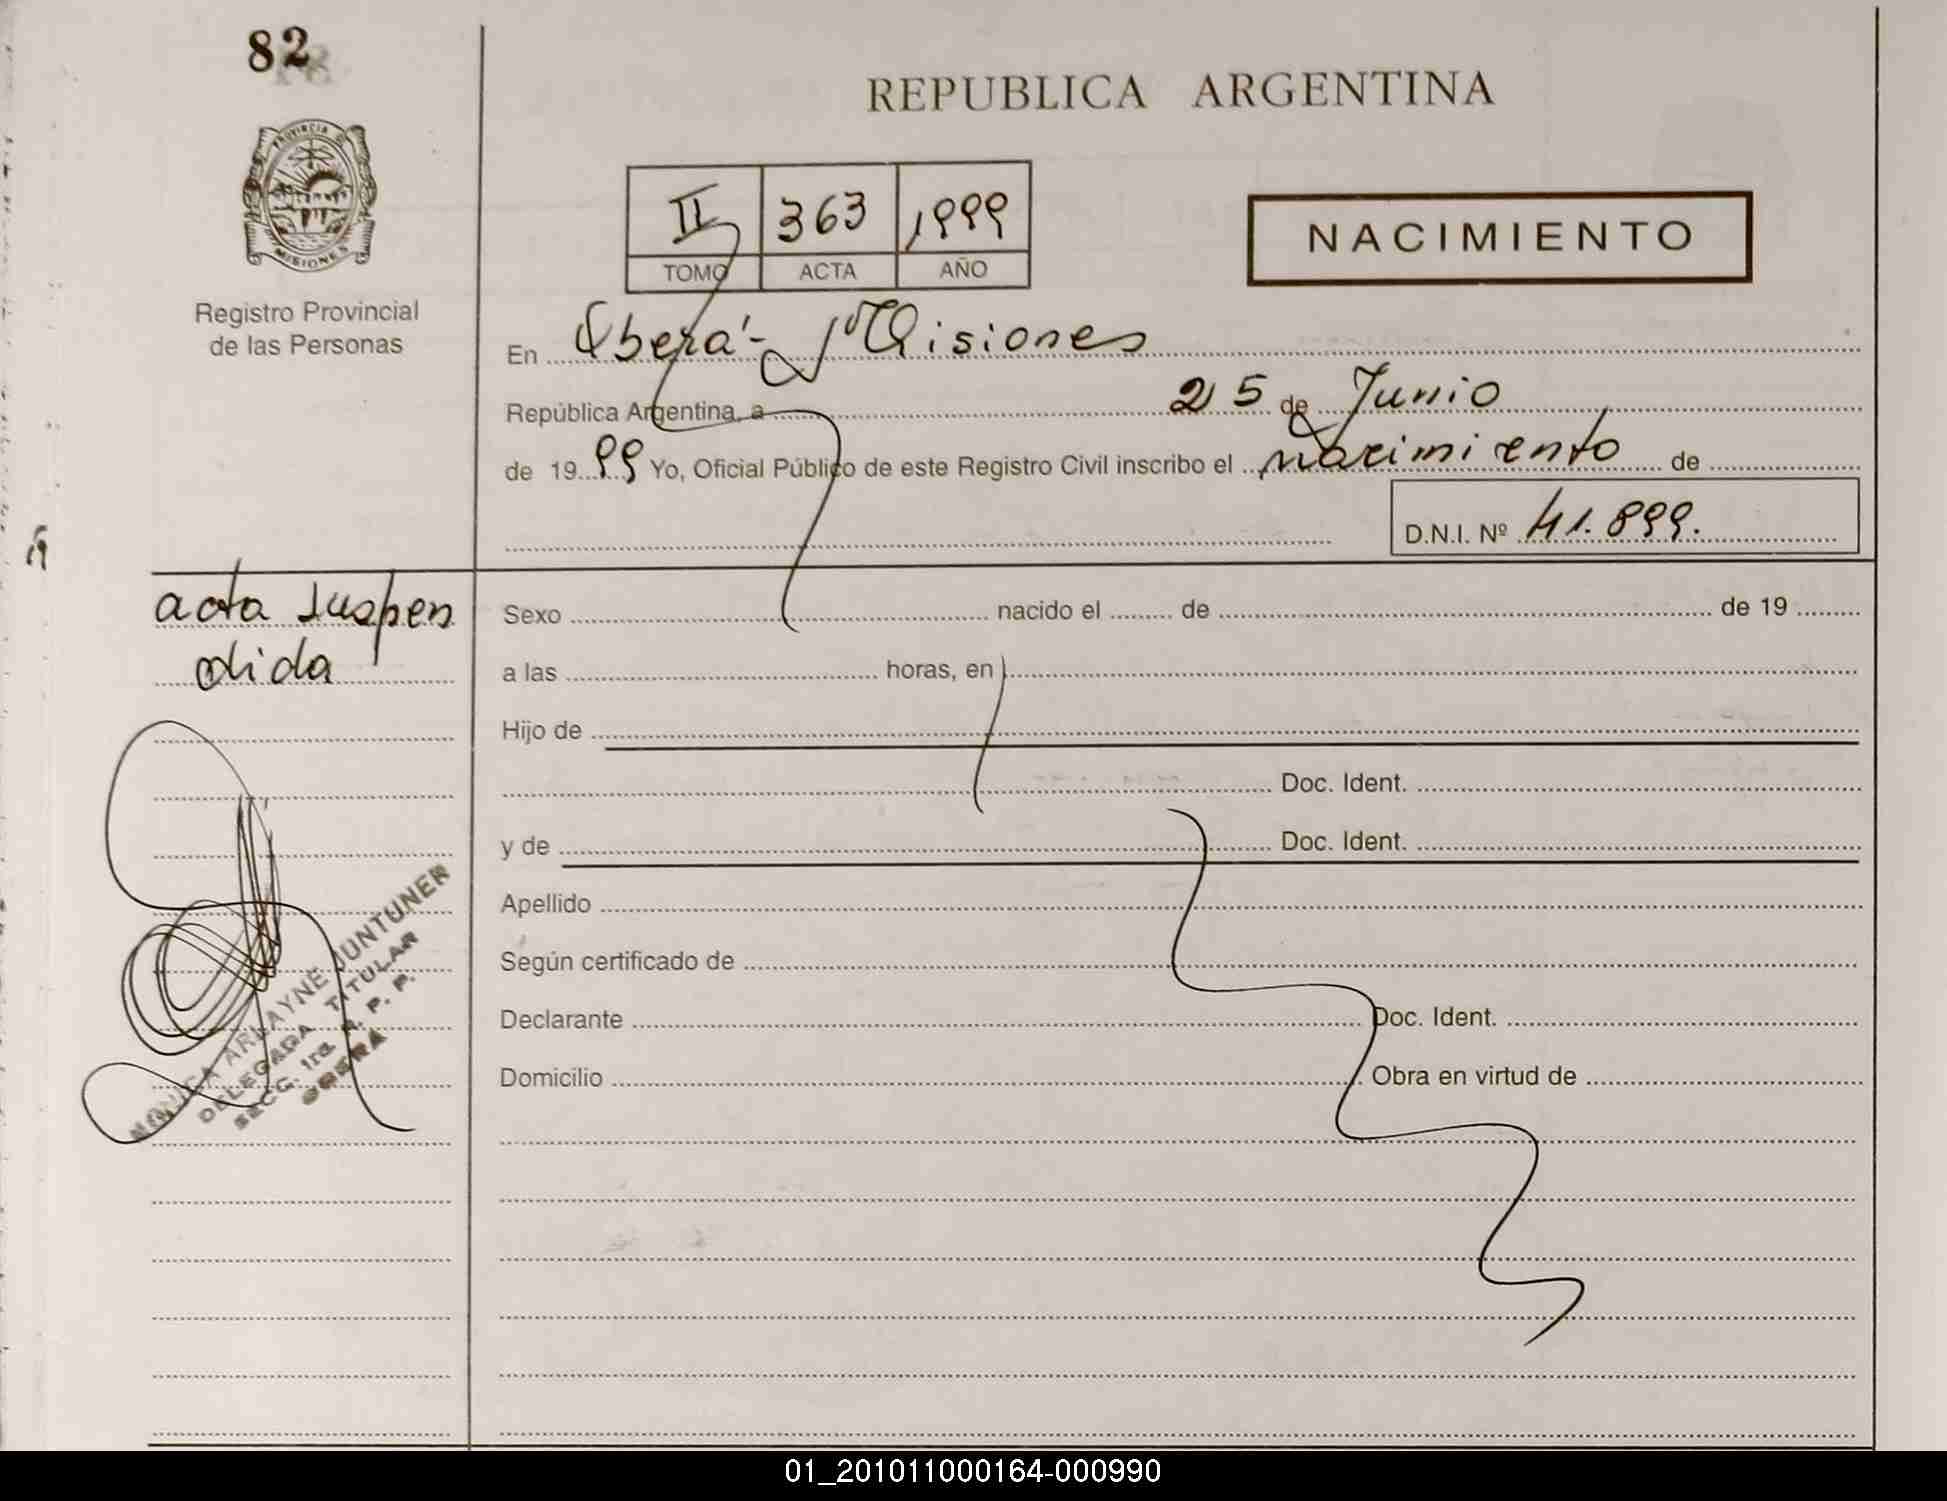 82
REPUBLICA ARGENTINA
PROVINCIA D
MISIONES
Registro Provincial
de las Personas
II 363 1999
TOMO ACTA AÑO
NACIMIENTO
En Oberá - Misiones
República Argentina, a 25 de Junio
de 1999 Yo, Oficial Público de este Registro Civil inscribo el nacimiento de
D.N.I. Nº 41.899.
acta suspen
dida
Sexo nacido el de de 19
a las horas, en
Hijo de
Doc. Ident.
y de Doc. Ident.
Apellido
Según certificado de
Declarante Doc. Ident.
Domicilio Obra en virtud de
MONICA ARLAYNE JUNTUNER
DELEGADA TITULAR
SECC. 1ra. R. P. P.
OBERA
01_201011000164-000990